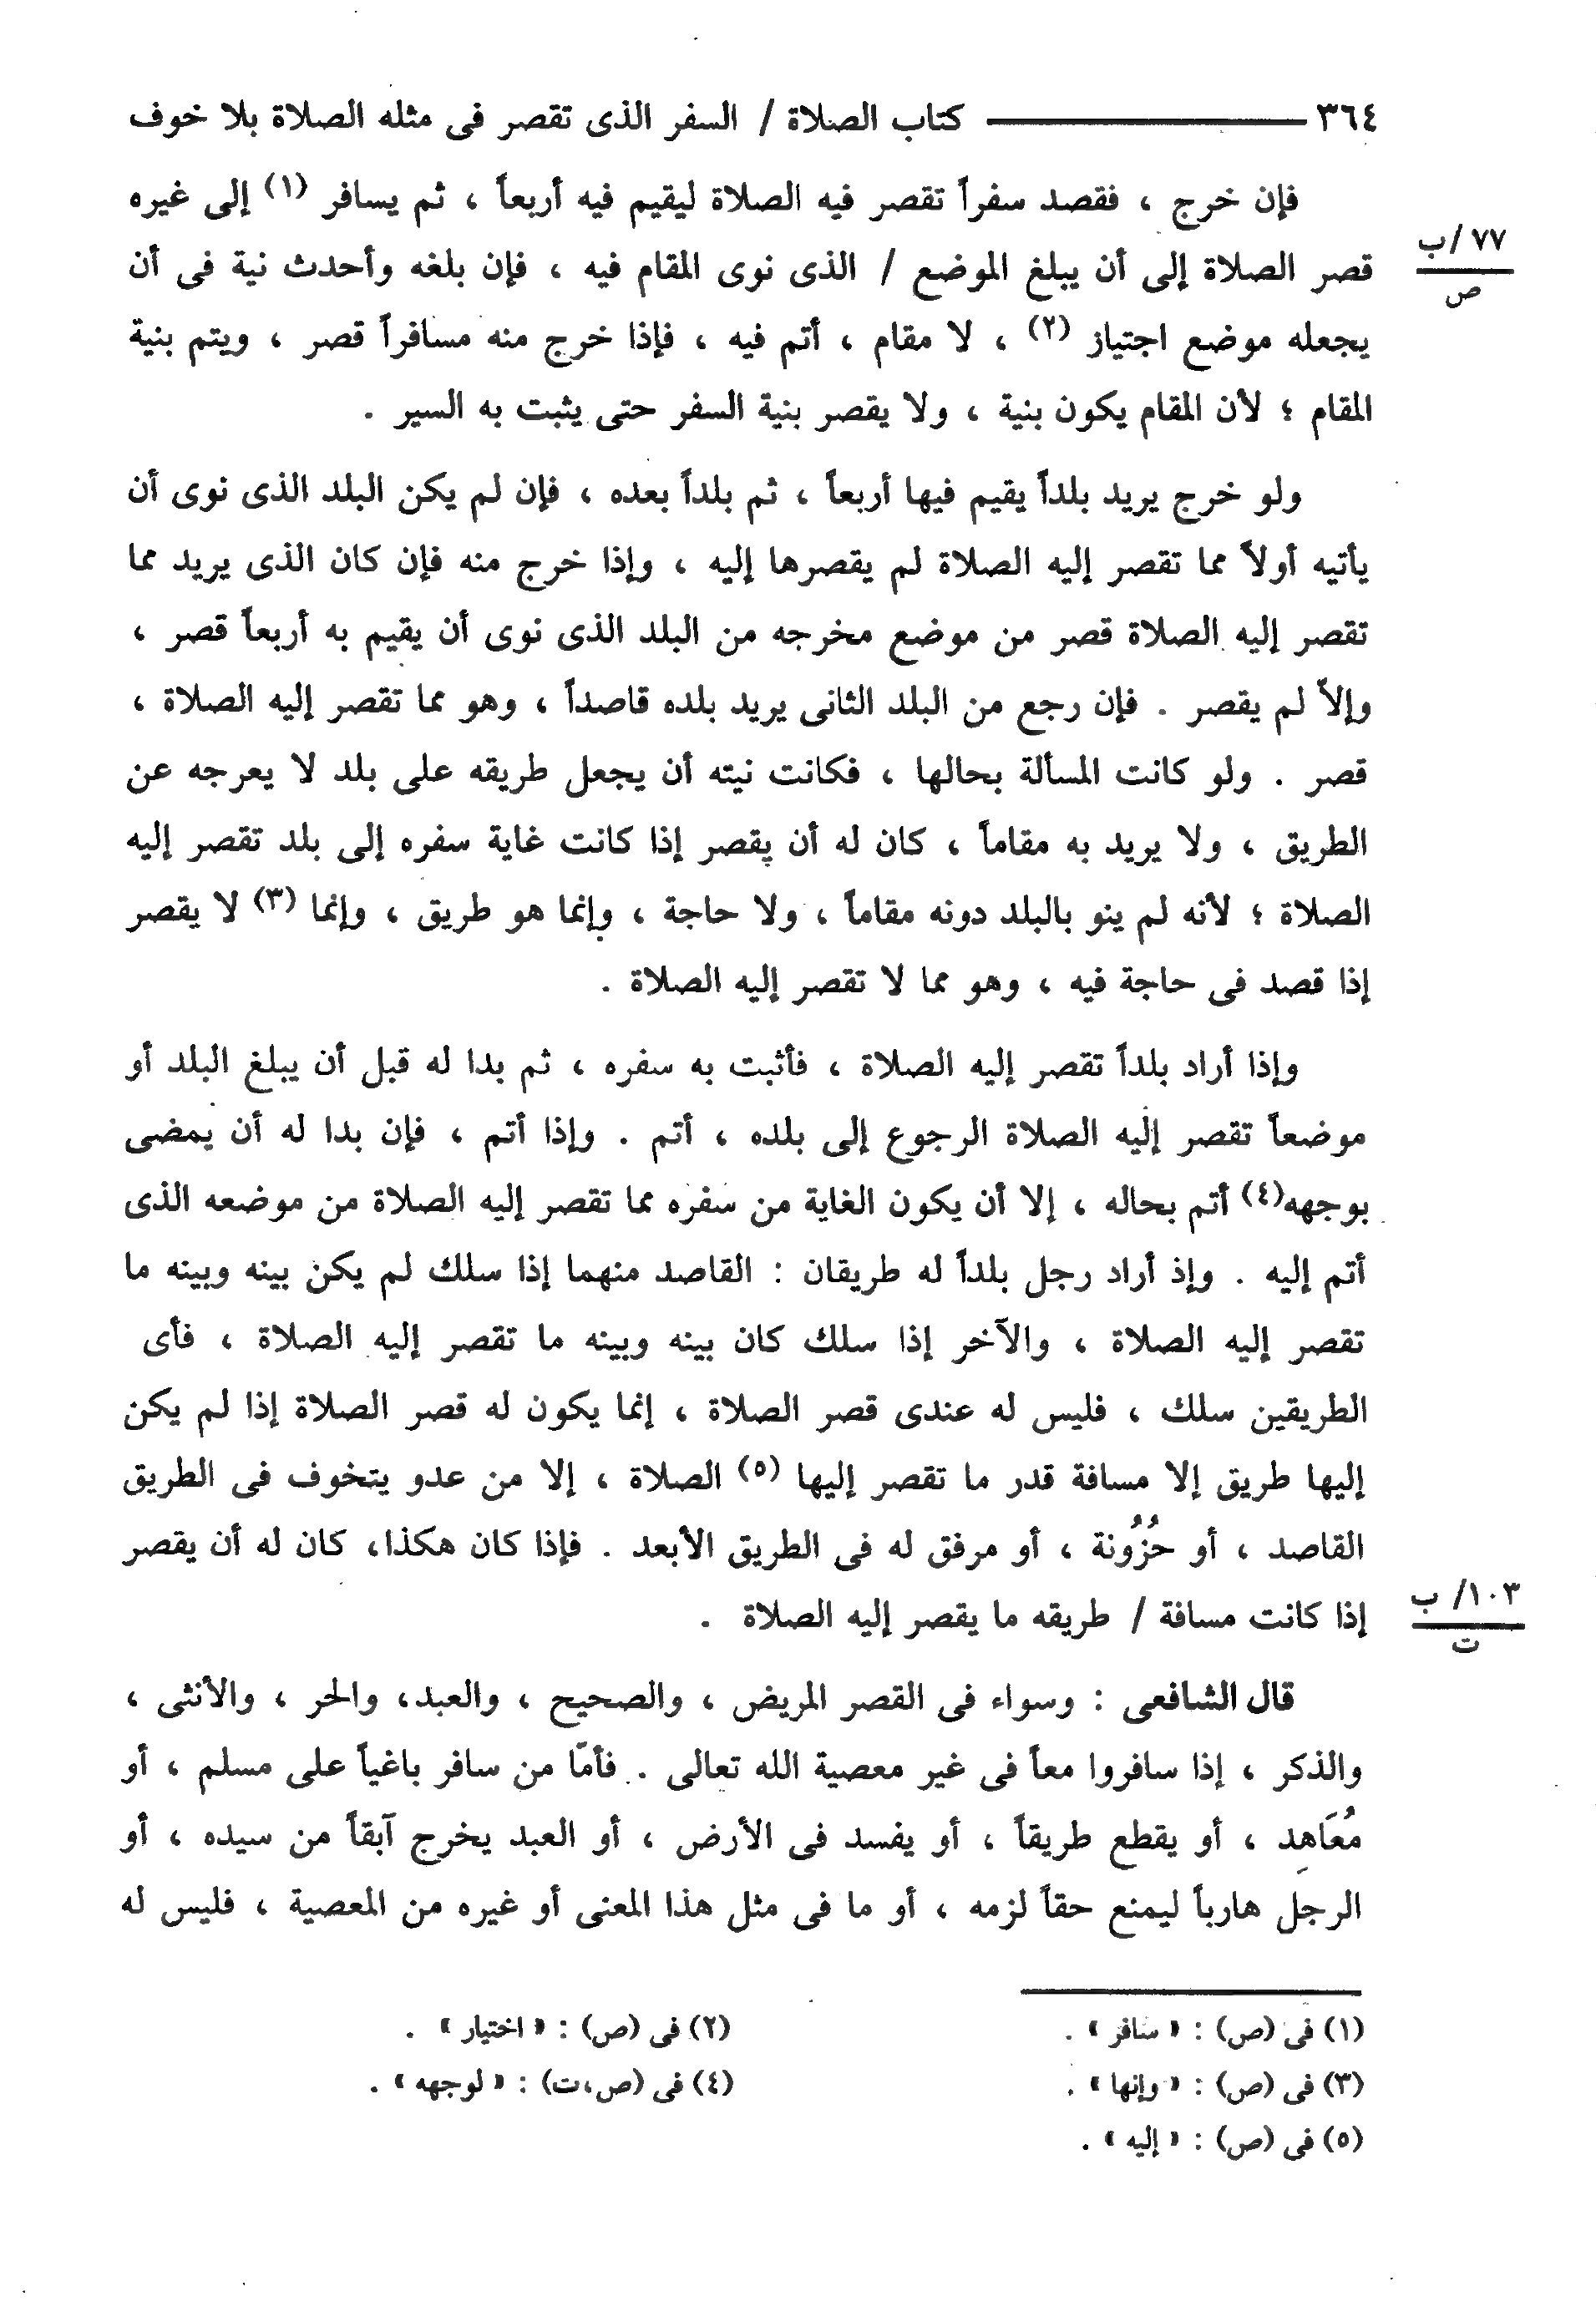 ٣٦٤ ــــــــــــــــــ كتاب الصلاة / السفر الذى تقصر فى مثله الصلاة بلا خوف
فإن خرج ، فقصد سفراً تقصر فيه الصلاة ليقيم فيه أربعاً ، ثم يسافر (١) إلى غيره
٧٧ /ب
ص
قصر الصلاة إلى أن يبلغ الموضع / الذى نوى المقام فيه ، فإن بلغه وأحدث نية فى أن
يجعله موضع اجتياز (٢) ، لا مقام ، أتم فيه ، فإذا خرج منه مسافراً قصر ، ويتم بنية
المقام ؛ لأن المقام يكون بنية ، ولا يقصر بنية السفر حتى يثبت به السير .
ولو خرج يريد بلداً يقيم فيها أربعاً ، ثم بلداً بعده ، فإن لم يكن البلد الذى نوى أن
يأتيه أولاً مما تقصر إليه الصلاة لم يقصرها إليه ، وإذا خرج منه فإن كان الذى يريد مما
تقصر إليه الصلاة قصر من موضع مخرجه من البلد الذى نوى أن يقيم به أربعاً قصر ،
وإلاّ لم يقصر . فإن رجع من البلد الثانى يريد بلده قاصداً ، وهو مما تقصر إليه الصلاة ،
قصر . ولو كانت المسألة بحالها ، فكانت نيته أن يجعل طريقه على بلد لا يعرجه عن
الطريق ، ولا يريد به مقاماً ، كان له أن يقصر إذا كانت غاية سفره إلى بلد تقصر إليه
الصلاة ؛ لأنه لم ينو بالبلد دونه مقاماً ، ولا حاجة ، وإنما هو طريق ، وإنما (٣) لا يقصر
إذا قصد فى حاجة فيه ، وهو مما لا تقصر إليه الصلاة .
وإذا أراد بلداً تقصر إليه الصلاة ، فأثبت به سفره ، ثم بدا له قبل أن يبلغ البلد أو
موضعاً تقصر إليه الصلاة الرجوع إلى بلده ، أتم . وإذا أتم ، فإن بدا له أن يمضى
بوجهه(٤) أتم بحاله ، إلا أن يكون الغاية من سفره مما تقصر إليه الصلاة من موضعه الذى
أتم إليه . وإذ أراد رجل بلداً له طريقان : القاصد منهما إذا سلك لم يكن بينه وبينه ما
تقصر إليه الصلاة ، والآخر إذا سلك كان بينه وبينه ما تقصر إليه الصلاة ، فأى
الطريقين سلك ، فليس له عندى قصر الصلاة ، إنما يكون له قصر الصلاة إذا لم يكن
إليها طريق إلا مسافة قدر ما تقصر إليها (٥) الصلاة ، إلا من عدو يتخوف فى الطريق
القاصد ، أو حُزُونة ، أو مرفق له فى الطريق الأبعد . فإذا كان هكذا، كان له أن يقصر
١٠٣/ ب
ت
إذا كانت مسافة / طريقه ما يقصر إليه الصلاة .
قال الشافعى : وسواء فى القصر المريض ، والصحيح ، والعبد، والحر ، والأنثى ،
والذكر ، إذا سافروا معاً فى غير معصية الله تعالى . فأمّا من سافر باغياً على مسلم ، أو
مُعَاهِد ، أو يقطع طريقاً ، أو يفسد فى الأرض ، أو العبد يخرج آبقاً من سيده ، أو
الرجل هارباً ليمنع حقاً لزمه ، أو ما فى مثل هذا المعنى أو غيره من المعصية ، فليس له
(١) فى (ص) : « سافر » . (٢) فى (ص) : « اختيار » .
(٣) فى (ص) : « وإنها » . (٤) فى (ص،ت) : « لوجهه » .
(٥) فى (ص) : « إليه » .